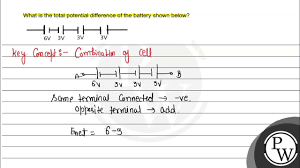 What is the total potential difference of the battery shown below?
6V 3V 3V 3V
Key Concept:- Combination of cell
A B
6v 3v 3v 3v
Same terminal connected → -ve.
opposite terminal → add.
Enet = 6-3
PW